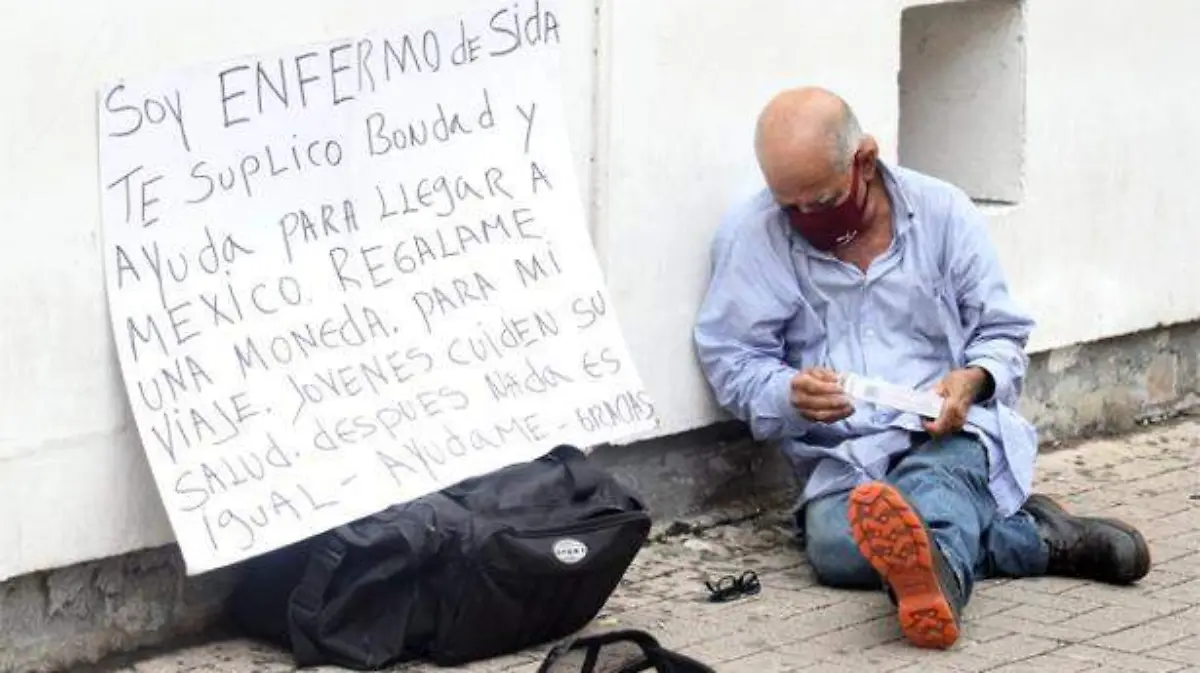 Soy ENFERMO de Sida
TE SUPLICO BONDAD Y
AYUDA PARA LLEGAR A
MEXICO. REGALAME
UNA MONEDA. PARA MI
VIAJE. JOVENES CUIDEN SU
SALUD. DESPUES NADA ES
IGUAL - AYUDAME - GRACIAS.